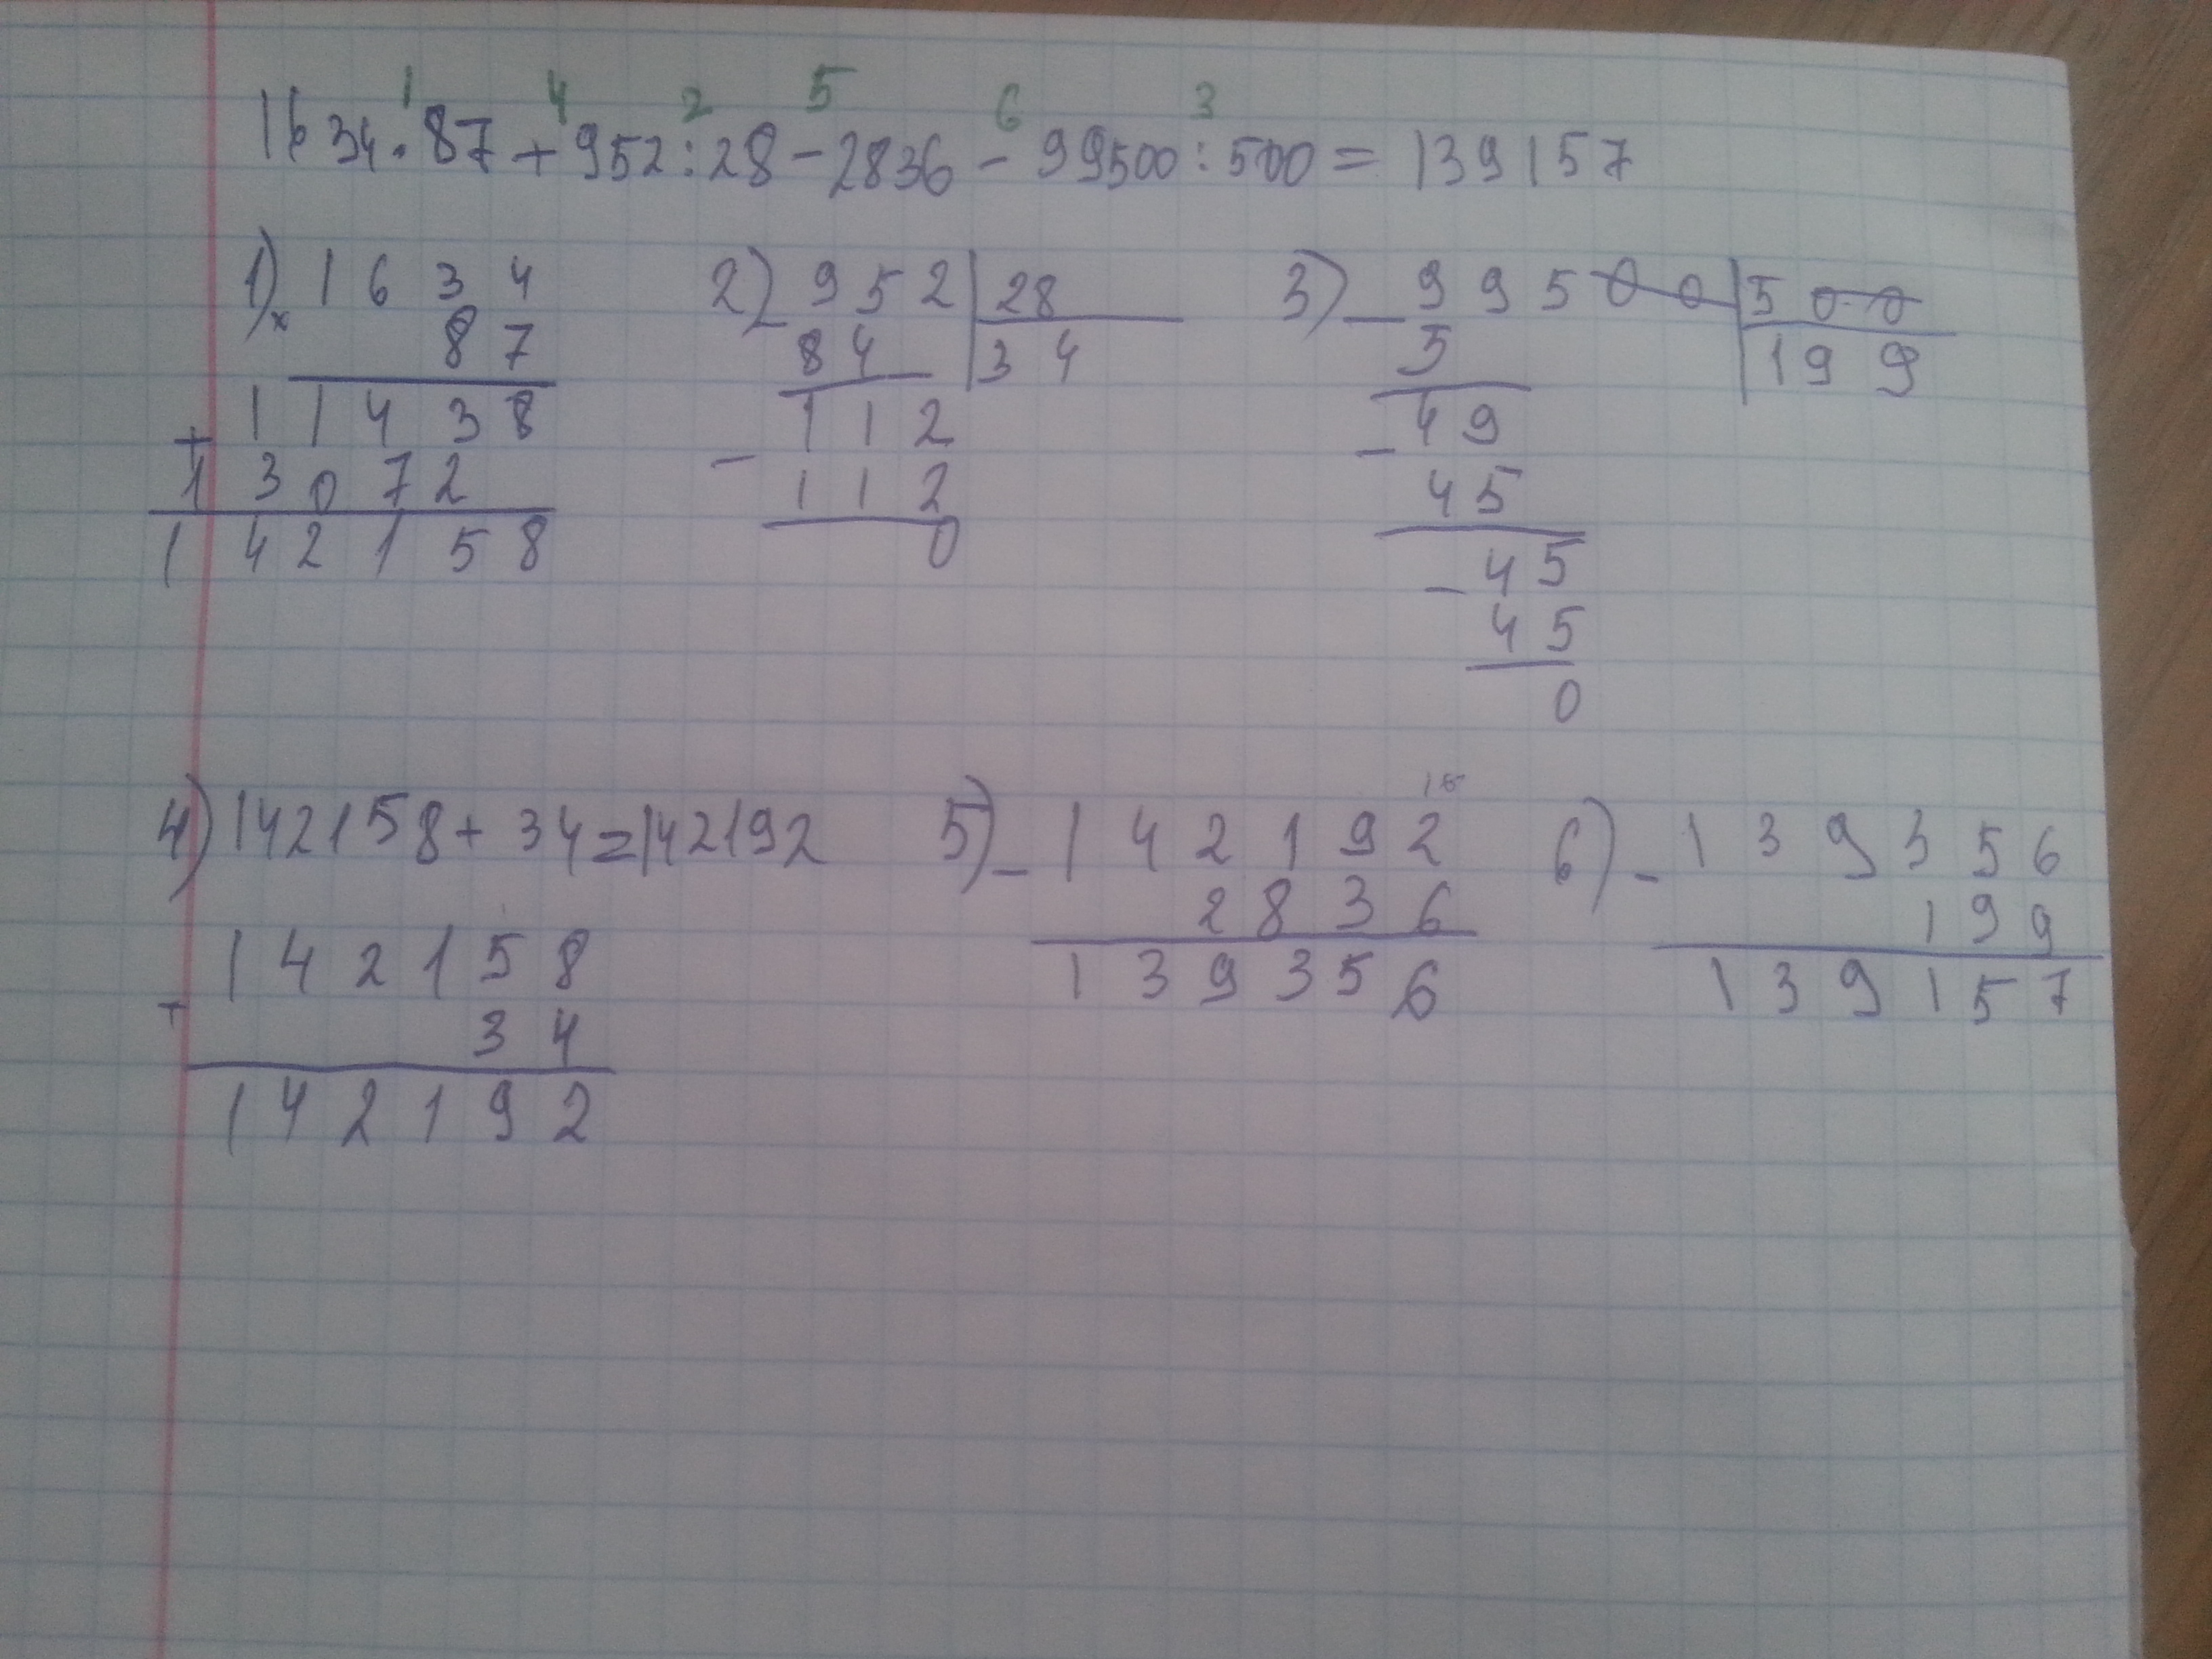 1 4 2 5 6 3
1634·87+952:28-2836-99500:500=139157
1) × 1634
87
+ 11438
13072
142158
2) - 952 | 28
84 34
- 112
112
0
3) - 99500 | 500
5 199
- 49
45
- 45
45
0
4) 142158+34=142192
142158
+ 34
142192
5) - 142192
2836
139356
6) - 139356
199
139157